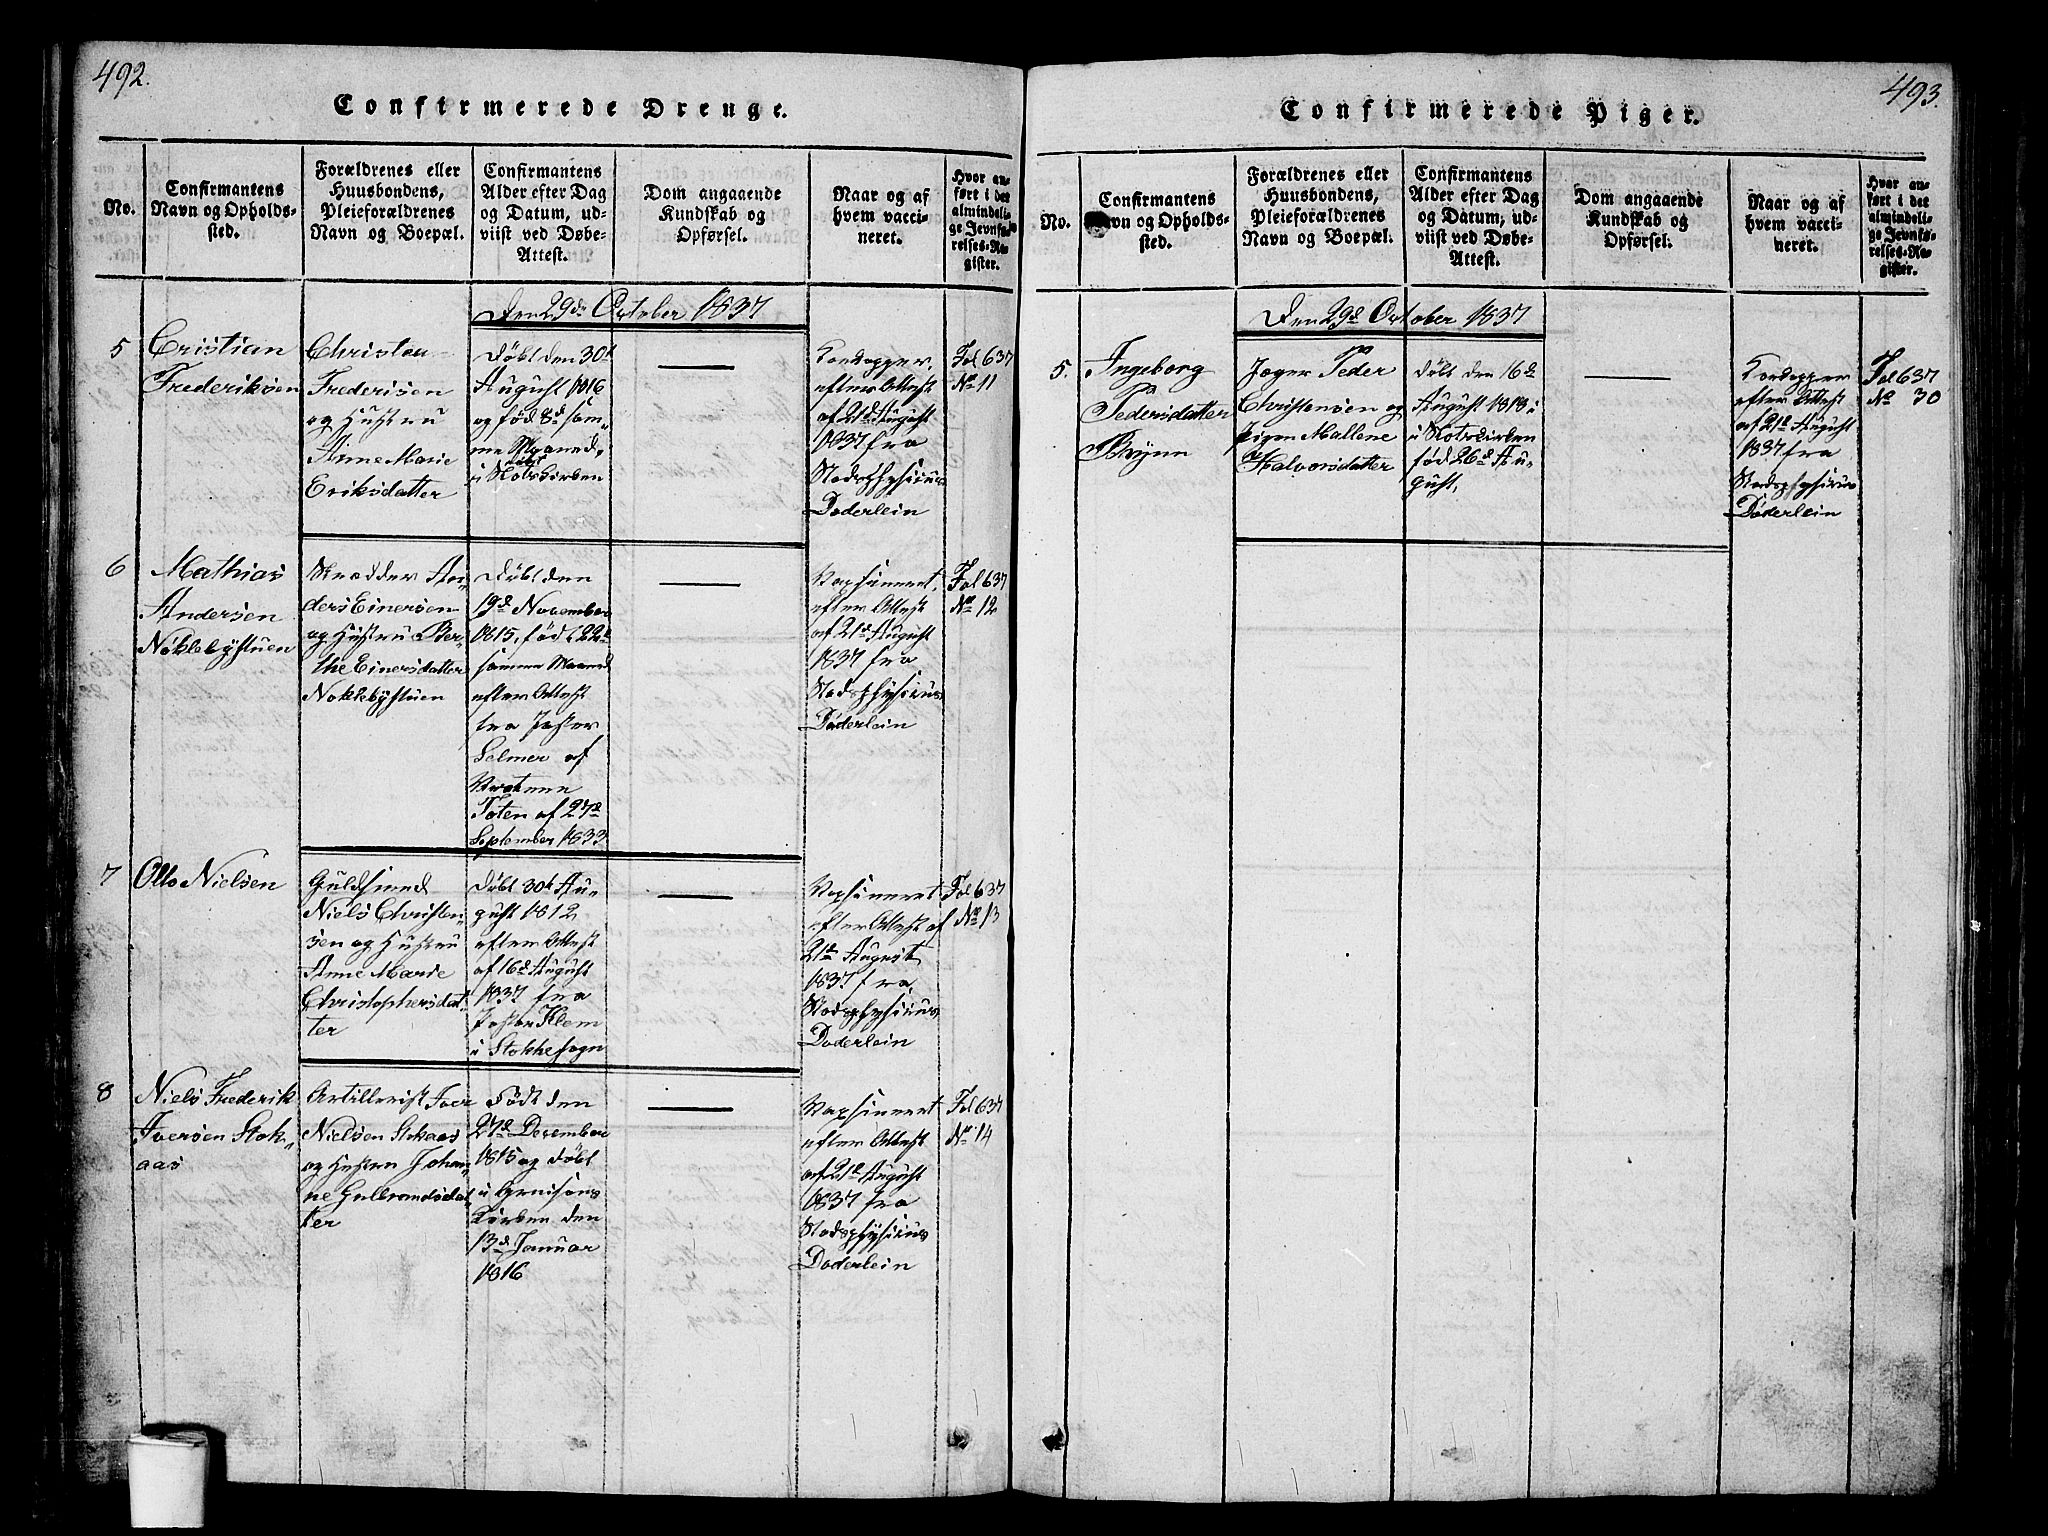 492.
Confirmerede Drenge.
No.
Confirmantens
Navn og Opholds-
sted.
Forældrenes eller
Huusbondens,
Pleieforældrenes
Navn og Boepæl.
Confirmantens
Alder efter Dag
og Datum, ud-
viist ved Døbe-
Attest.
Dom angaaende
Kundskab og
Opførsel.
Naar og af
hvem vacci-
neret.
Hvor an-
ført i det
almindeli-
ge Jevnfø-
relses-Re-
gister.
Den 29de October 1837
5
Cristian
Frederiksen
Christen
Frederisen
og Hustru
Anne Marie
Eriksdatter
Døbt den 30t
August 1816
og fød 8d sam-
me Maaned,
i Slotskirken
Kordopper
efter Attest
af 21d August
1837 fra
Stadsphysicus
Doderlein
Fol 637
No 11
6
Mathias
Andersen
Nøklebystuen
Skredder An-
ders Einersen
og Hustru Ber-
the Einersdatter
Nøklebystuen
Døbt den
19d November
1815, fød 22d
samme Maaned
efter Attest
fra Pastor
Selmer af
Vestenne
Toten af 27d
September 1833
Vaxsineret
efter Attest
af 21d August
1837 fra
Stadsphysicus
Döderlein
Fol 637
No 12
7
Otto Nielsen
Guldsmed
Niels Christen-
sen og Hustru
Anne Marie
Christophersdat-
ter
Døbt 30t Au-
gust 1812
efter Attest
af 16d August
1837 fra
Pastor Klem
i Stokkesogn
Vaxsineret
efter Attest af
21d August
1837 fra
Stadsphysicus
Doderlein
Fol 637
No 13
8
Niels Frederik
Iversen Stok-
aas
Artillerist Iver
Nielsen Stokaas
og Hustru Johan-
ne Gulbrandsdat-
ter
Født den
27d December
1815 og Døbt
i Garnisons
Kirken den
13d Januar
1816
Vaxsineret
efter Attest
af 21d August
1837 fra
Stadsphysicus
Doderlein
Fol 637
No 14
493.
Confirmerede Piger.
No.
Confirmantens
Navn og Opholds-
sted.
Forældrenes eller
Huusbondens,
Pleieforældrenes
Navn og Boepæl.
Confirmantens
Alder efter Dag
og Datum, ud-
viist ved Døbe-
Attest.
Dom angaaende
Kundskab og
Opførsel.
Naar og af
hvem vacci-
neret.
Hvor an-
ført i det
almindeli-
ge Jevnfø-
relses-Re-
gister.
Den 29d October 1837
5.
Ingeborg
Pedersdatter
Bryn
Jæger Peder
Christensen og
Pigen Mallene
Halvorsdatter
døbt den 16d
August 1818 i
i Slotskirken
fød 26d Au-
gust.
Kordopper
efter Attest
af 21d August
1837 fra
Stadsphysicus
Döderlein
Fol 637
No 30